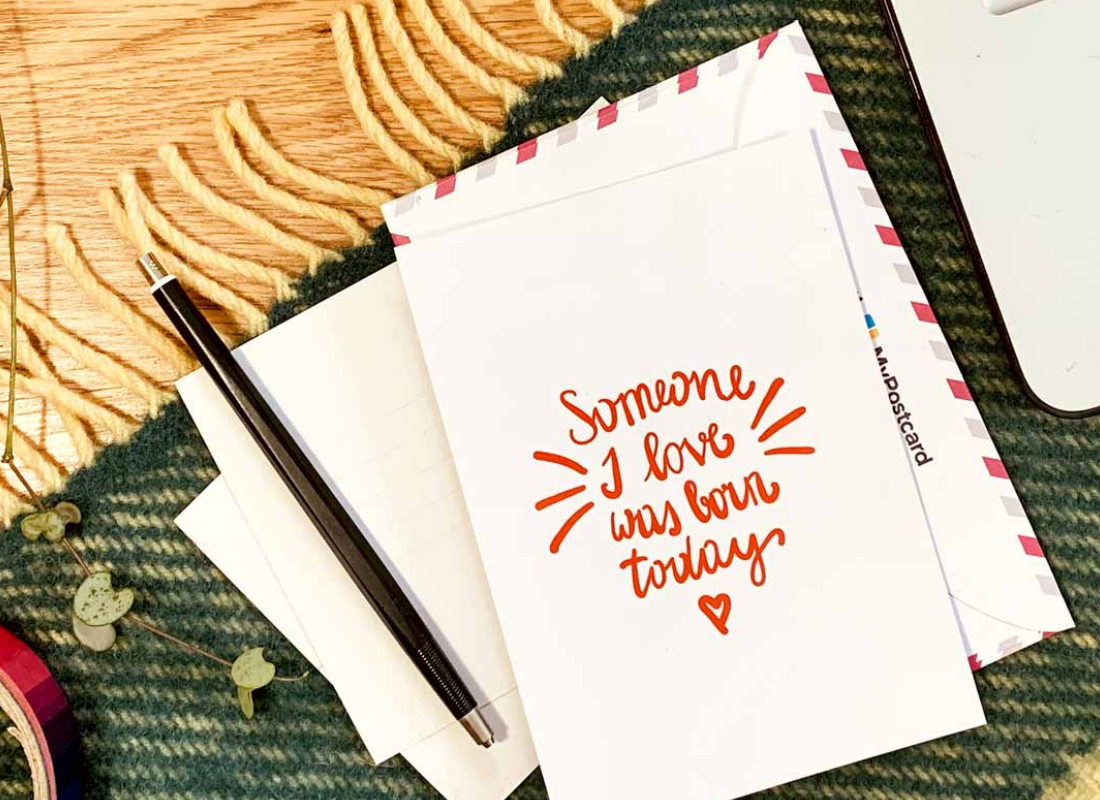 Someone
I love
was born
today
MyPostcard